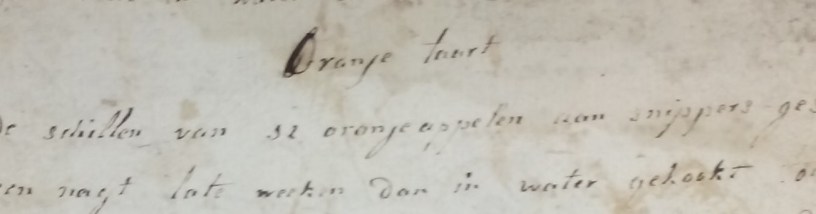 Oranje taart
de schillen van 12 oranje appelen aan snippers ges
een nagt late weeken dan in water gekookt